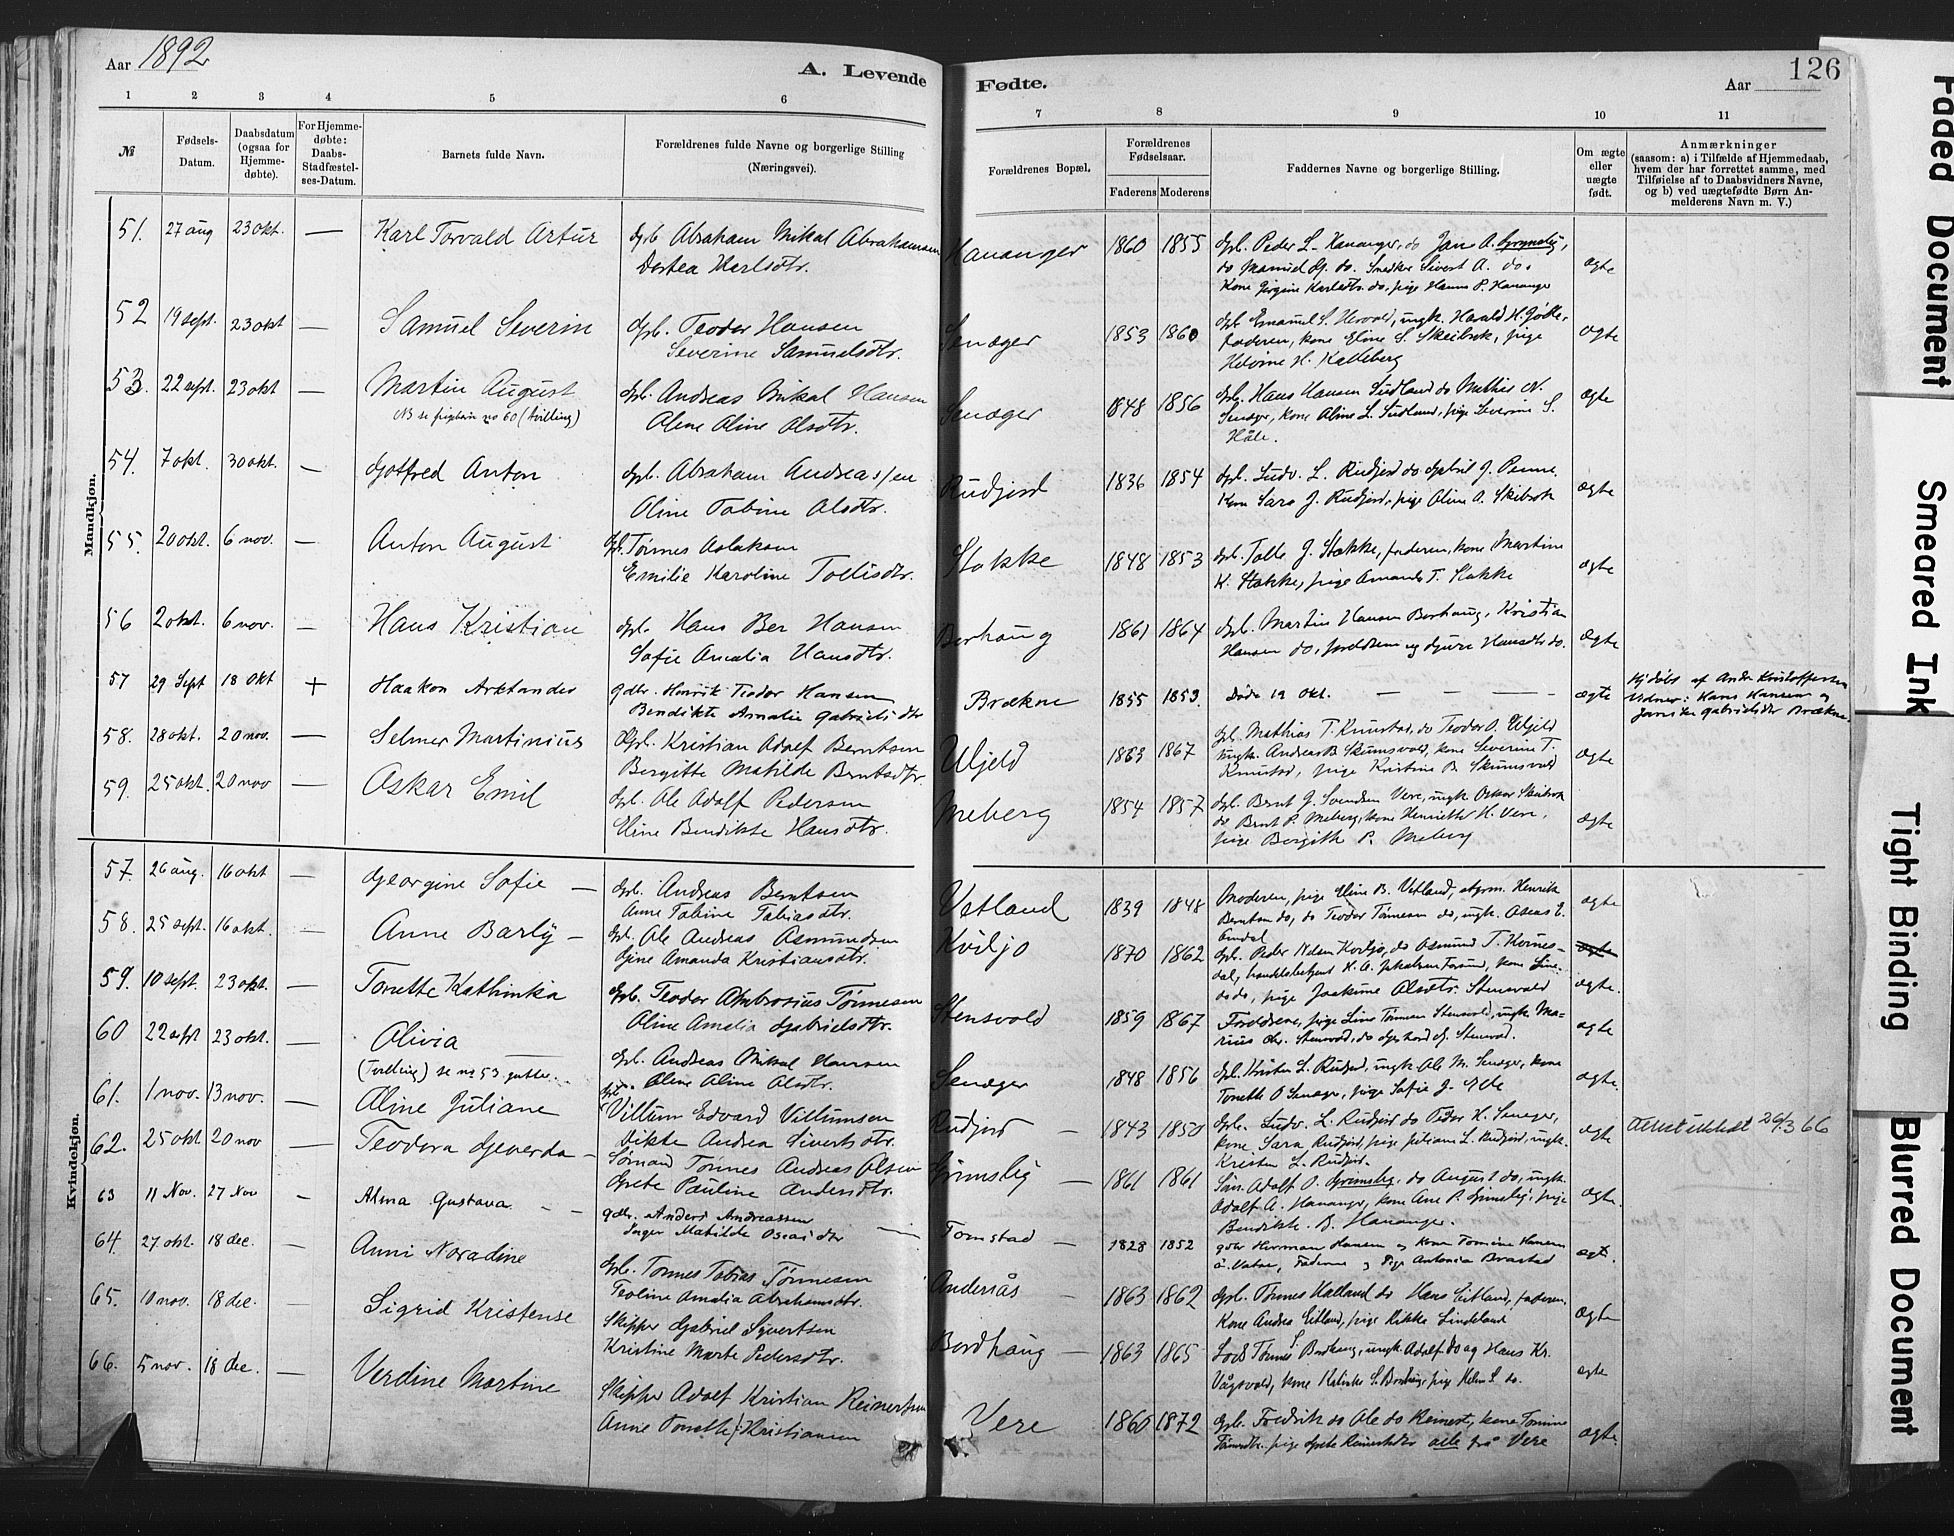 Aar 1892
A. Levende
Fødte.
Aar
126
1 2 3 4 5 6 7 8 9 10 11
№
Fødsels-
Datum.
Daabsdatum
(ogsaa for
Hjemme-
døbte).
For Hjemme-
døbte:
Daabs-
Stadfæstel-
ses-Datum.
Barnets fulde Navn.
Forældrenes fulde Navne og borgerlige Stilling
(Næringsvei).
Forældrenes Bopæl.
Forældrenes
Fødselsaar.
Faderens Moderens
Faddernes Navne og borgerlige Stilling.
Om ægte
eller
uægte
født.
Anmærkninger
(saasom: a) i Tilfælde af Hjemmedaab,
hvem der har forrettet samme, med
Tilføielse af to Daabsvidners Navne,
og b) ved uægtefødte Børn An-
melderens Navn m. V.)
Mandkjøn.
51. 27 aug 23 okt. — Karl Torvald Artur Gpb. Abraham Mikal Abrahamsen
Dortea Karlsdtr.
Hananger 1860 1855 Gpb. Peder L. Hananger, do Jens A. Grymsby,
ægte
52 19 sept. 23 okt — Samuel Severin Gpb. Teodor Hansen
Severine Samuelsdtr.
Senæger 1853 1860
faderen, kone Eline S. Skeibrok, pige
ægte
53. 22 sept. 23 okt — Martin August
NB se pigebarn no 60 (tvilling)
Gpb. Andreas Mikal Hansen
Alene Oline Olsdtr.
Senæger 1848 1856 Gpb. Hans Hansen Sudland do Mathis N.
Senæger, kone Aline L. Sudland, pige Severine S.
Håle.
ægte
54. 7 okt. 30 okt. — Gotfred Anton Gpb. Abraham Andreassen
Oline Tobine Olsdtr.
Rudjord 1836 1854 Gpb. Ludv. L. Rudjord do Gabriel J. Penne
Kone Sara J. Rudjord, pige Oline O. Skibrok
ægte
55. 20 okt. 6 nov. — Anton August Gpb. Tønnes Aslaksen
Emilie Karoline Tollisdtr.
Stokke 1848 1853 Gpb. Tolle J. Stokke, faderen, kone Martine
K. Stokke, pige Amanda T. Stokke
ægte
56 2 okt. 6 nov. — Hans Kristian Gpb. Hans Ber Hansen
Sofie Amalia Hansdtr.
Borhaug 1861 1864 Gpb. Martin Hansen Borhaug, Kristian
Hansen do, forældrene og Gjure Hansdtr do.
ægte
57 29 Sept 18 Okt + Haakon Arktander gdbr. Henrik Teodor Hansen
Bendikte Amalie Gabrielsdtr
Brækne 1855 1853. Døde 19 Okt. — — —
ægte
Hj. døbt af Anders Kristoffersen
Vidner: Hans Hansen og
Gabrielsdtr Brækne
58. 28 okt. 20 nov. — Selmer Martinius Gpb. Kristian Adolf Berntsen
Bergitte Matilde Berntsdtr.
Ulgjeld 1863 1867 Gpb. Mathias T. Knustad, do Teodor O. Ulgjeld
ungk. Andreas B. Skumsvold, kone Severine T.
Knustad, pige Kristine B. Skumsvold
ægte
59. 25 okt. 20 nov — Oskar Emil Gpb. Ole Adolf Pedersen
Eline Bendikte Hansdtr.
Meberg 1854 1857 Gpb. Bernt G. Svendsen Vere, ungk. Oskar Skibrok
do Bernt P. Meberg, kone Henriette H. Vere,
pige Bergitte P. Meberg
ægte
Kvindekjøn.
57. 26 aug. 16 okt — Georgine Sofie — Gpb. Andreas Berntsen
Anne Tobine Tobiasdtr.
Vetland 1839 1848 Moderen, pige Eline B. Vetland, Henrik
Berntsen do, do Teodor Tønnesen do, ungk.
ægte
58. 25 sept. 16 okt. — Anne Barly — Gpb. Ole Andreas Osmundsen
Gjine Amanda Kristiansdtr.
Kviljo 1870 1862 Gpb. Peder Nilsen Kviljo, do Osmund T. Kvines-
dal,
do do, pige Joakime Olsdtr. Stensvold
ægte
ægte.
59. 10 sept. 23 okt. — Tonette Kathinka Gpb. Teodor Ambrosius Tønnesen
Aline Amalia Gabrielsdtr.
Stensvold 1859 1867 Forældrene, pige Line Tønnesen Stensvold, ungk. Ma-
rius Stensvold,
ægte
60 22 sept 23 okt. — Olivia
(Tvilling) se no 53 gutter
Gpb. Andreas Mikal Hansen
Alene Oline Olsdtr.
Senæger 1848 1856 Gpb. Kristen L. Rudjord, ungk. Ole M. Senæger, kone
Tonette O Senæger, pige Sofie J.
ægte.
61. 1 nov. 13 nov. — Aline Juliane Gpb. Villum Edvard Villumsen
Vikte Andrea Sivertsdtr.
Rudjord — 1843 1850 Gpb. Ludv. L. Rudjord do Peder H. Senæger,
kone Sara Rudjord, pige Juliane L. Rudjord, ungk.
Kristen L. Rudjord.
ægte
Attest utstedt 26/3 66
62. 25 okt 20 nov — Teodora Geverda — Sømand Tønnes Andreas Olsen
Grete Pauline Andersdtr.
Grimsby — 1861 1861 Søm. Adolf O. Grimsby, do August do, ungk.
Adolf A. Hananger, kone Ane P. Grimsby, pige
Bendikte B. Hananger.
ægte.
63 11 Nov. 27 Nov — Alma Gustava — — gdbr. Anders Andreassen
Inger Matilde Oscarsdtr —
Tomstad — 1828 1852 gdbr Herman Hansen og kone Tomine Hansen
Faderen og Pige Antonia Brastad
ægt.
64. 27 okt. 18 dec. — Anni Noradine Gpb. Tønnes Tobias Tønnesen
Teoline Amalia Abrahamsdtr.
Andersås — 1863 1862 Gpb. Tønnes Hatland do Hans Eitland, faderen,
Kone Andrea Eitland, pige Rikka Lindeland
ægte
65. 10 nov. 18 dec. — Sigrid Kristense Skipper Gabriel Syvertsen
Kristine Marte Pedersdtr.
Bordhaug — 1863 1865 Lods Tønnes S. Bordhaug, ungk. Adolf do og Hans Kr.
Vågsvold,
ægte
66. 5 nov. 18 dec. — Verdine Martine Skipper Adolf Kristian Reinertsen
Anne Tonette Kristiansen
Vere 1865 1872 Gpb. Fredrik do Ole do Reinert, kone Tomine
Tønnesdtr. pige Grete Reinertsdtr alle frå Vere
ægte.
Faded Document
Smeared Ink
Tight Binding
Blurred Document